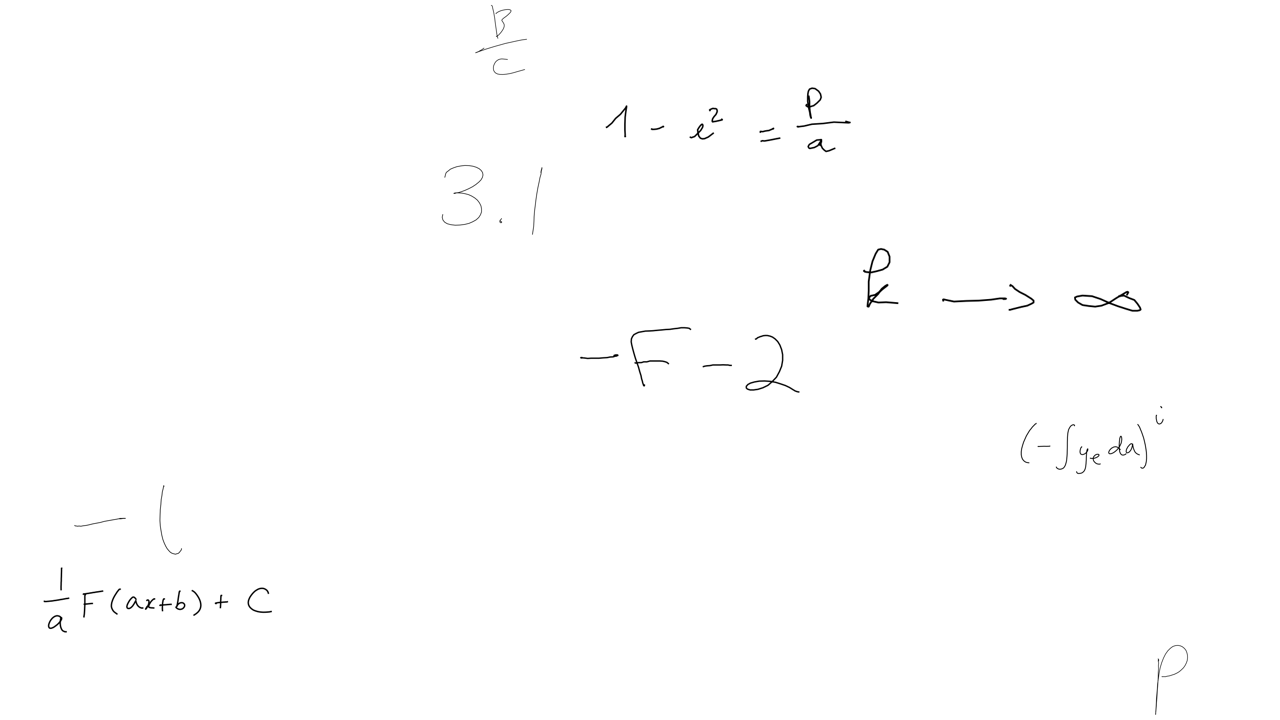 B/C
1 - e² = p/a
3.1
k → ∞
-F-2
(-∫yₑ da)ⁱ
-l
1/a F(ax+b) + C
p